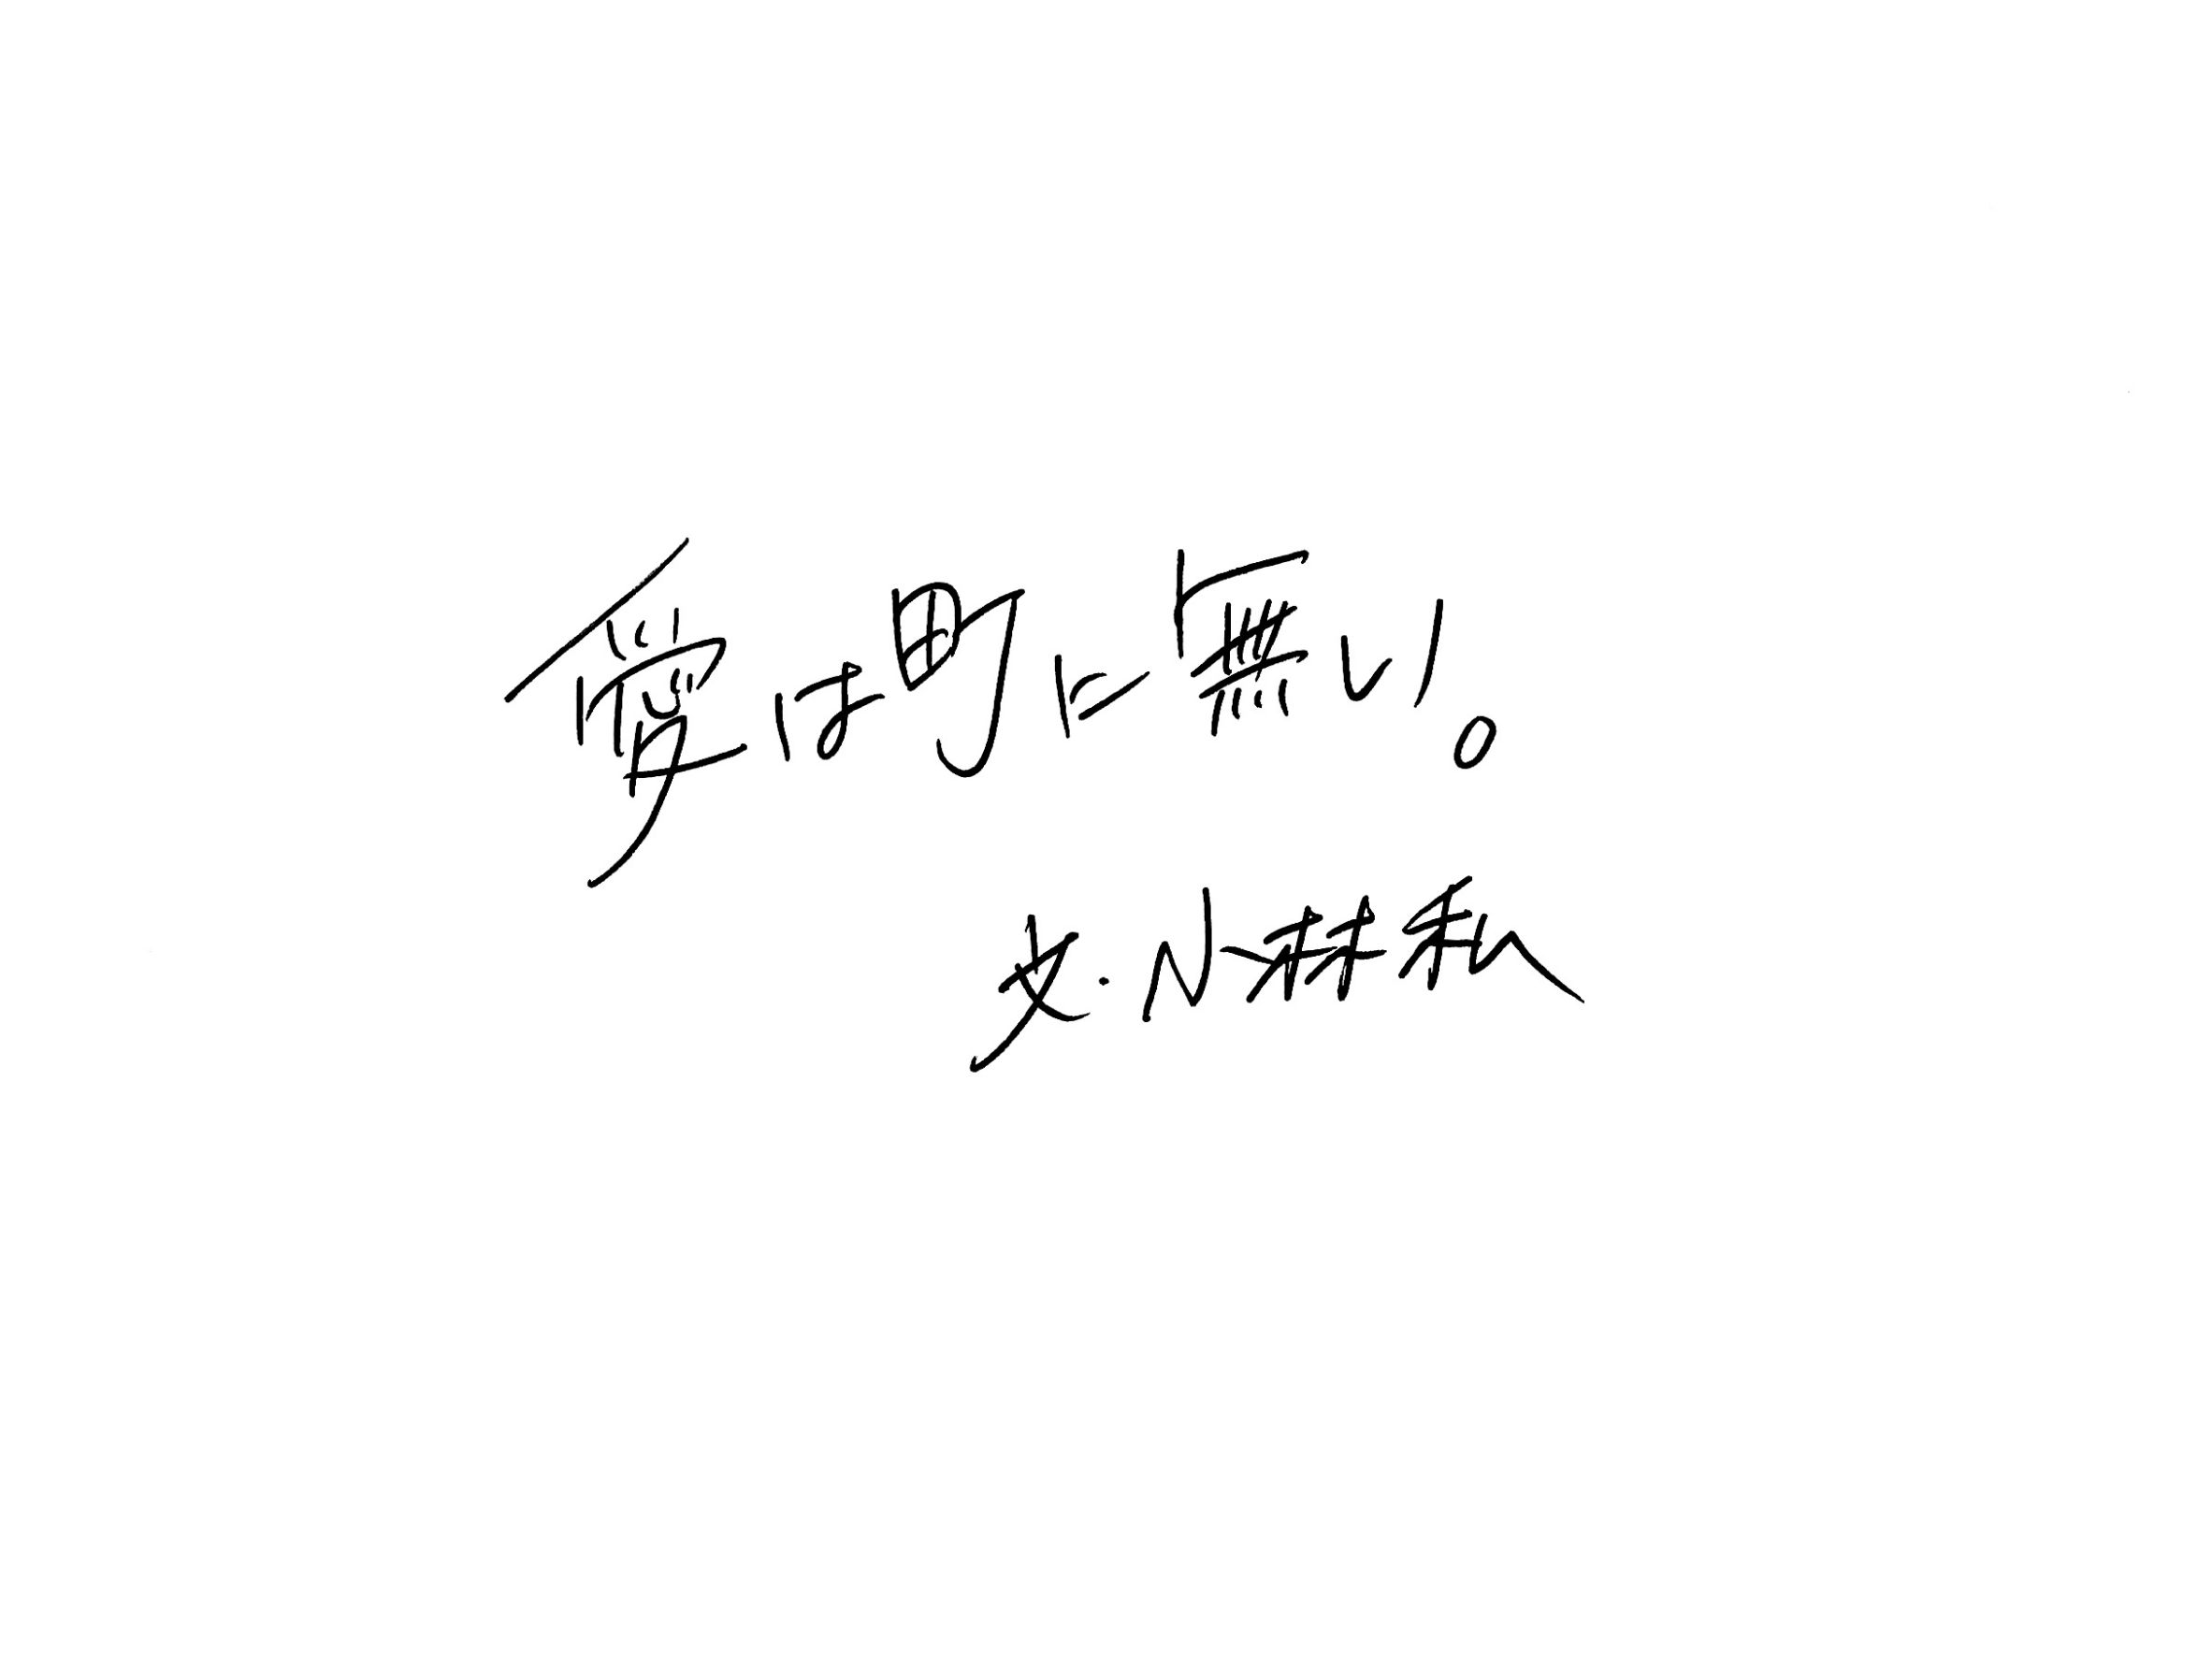 愛は町に無い。
文・小林私